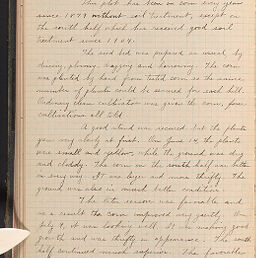 This plot has been in corn every year
since 1879 without soil treatment, except on
the south half which has received good soil
treatment since 1904.
The seed bed was prepared as usual by
discing, plowing, dragging and harrowing. The corn
was planted by hand from tested corn so the
number of plants could be secured for each hill.
Ordinary clean cultivation was given the corn, four
cultivations all told.
A good stand was secured but the plants
grew very slowly at first. On June 14 the plants
were small and yellow, while the ground was dry
and cloddy. The corn on the south half was better
in every way. It was larger and more thrifty. The
ground was also in much better condition.
The later season was favorable and
as a result the corn improved very greatly. On
July 9, it was looking well. It was making good
growth and was thrifty in appearance. The south
half continued much superior. The favorable